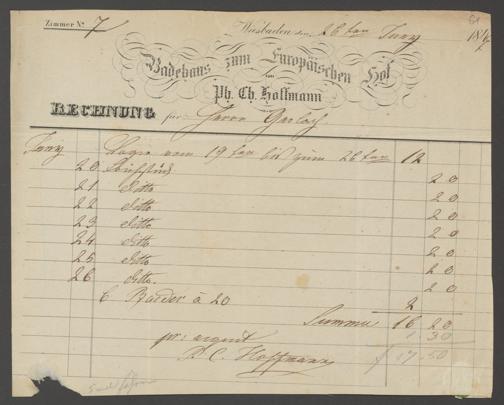 Zimmer No. 7
Wiesbaden den 26ten Juny 18
Badehaus zum Europäischen Hof
von
Ph. Ch. Hoffmann
RECHNUNG für Herrn Gerlach
Juny Logis vom 19ten bis zum 26ten 12
20 Frühstück 20
21 ditto 20
22 ditto 20
23 ditto 20
24 ditto 20
25 ditto 20
26 ditto. 20
6 Baeder à 20 2
Summa 16 20
1 30
pr: acquit
P. C. Hoffmann f 17 50